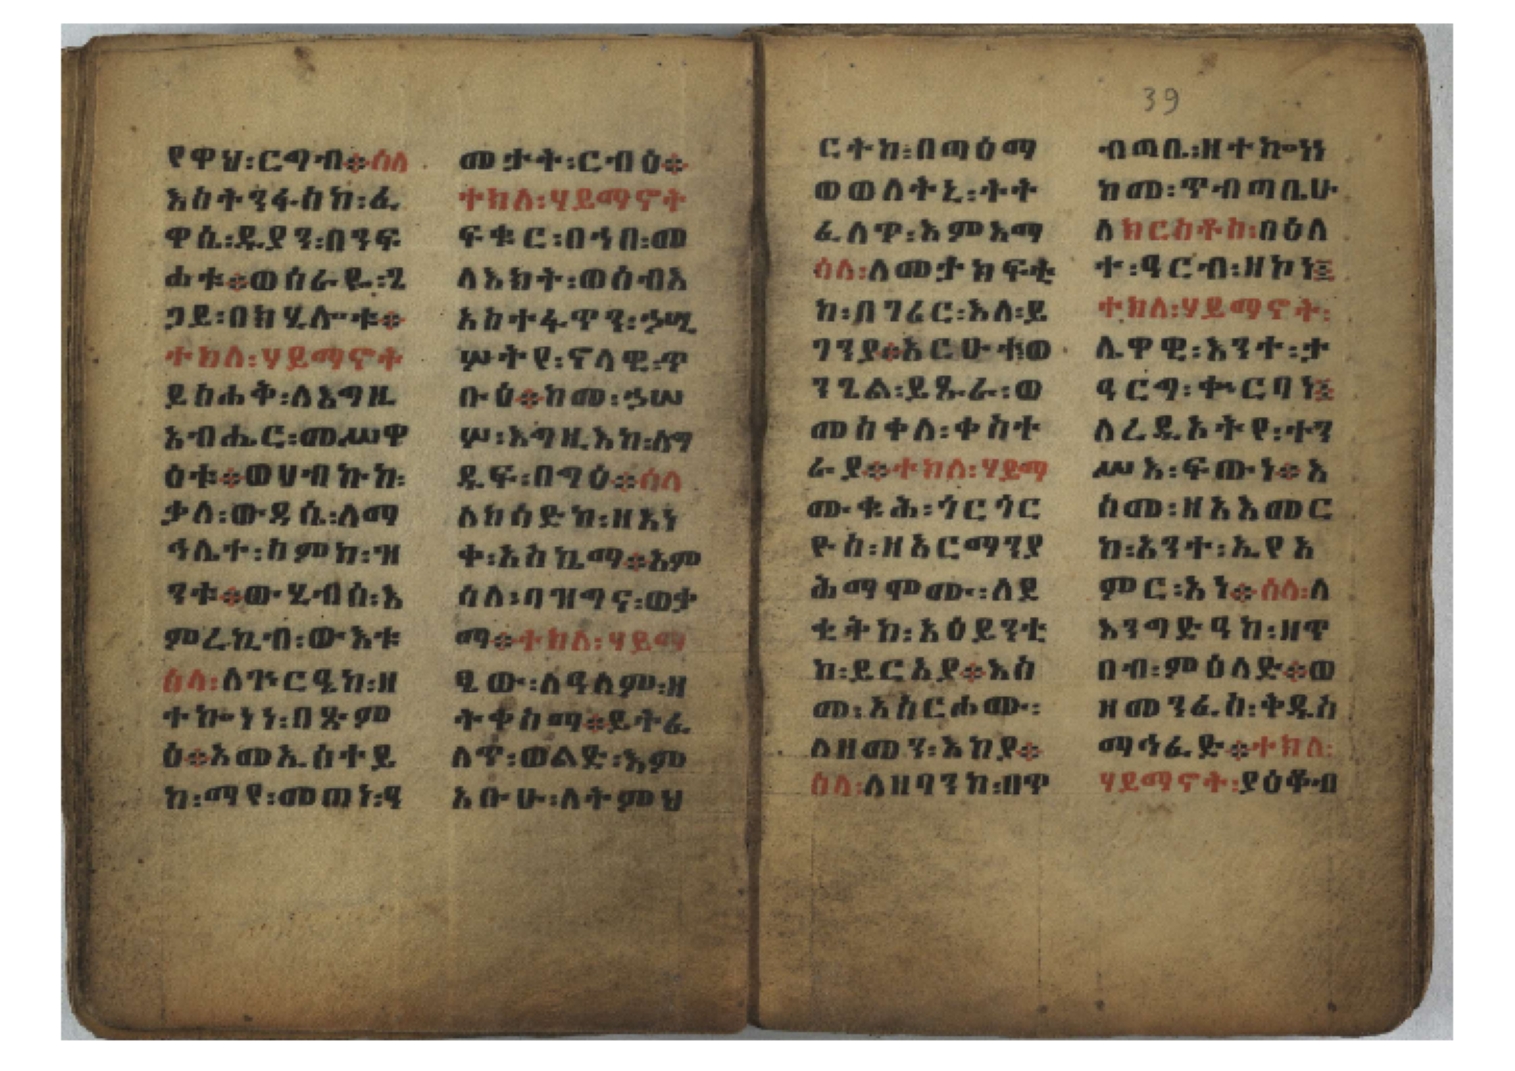 የዋህ፡ርግብ፨ሰላ
እስትንፋስከ፡ፈ
ዋሴ፡ዱያን፡በንፍ
ሐቱ፨ወሰራዬ፡ጌ
ጋይ፡በክሂሎቱ፨
ተክለ፡ሃይማኖት
ይስሐቅ፡ለእግዚ
አብሔር፡መሥዋ
ዕቱ፨ወሀብኩከ፡
ቃለ፡ውዳሴ፡ለማ
ኅሌተ፡ስምከ፡ዝ
ንቱ፨ውሂብሰ፡እ
ምረኪብ፡ውእቱ
ሰላ፡ለጕርዔከ፡ዘ
ተኰነነ፡በጽም
ዕ፨አመኢሰተይ
ከ፡ማየ፡መጠነ፡ዓ
መታት፡ርብዕ፨
ተክለ፡ሃይማኖት
ፍቁር፡በኀበ፡መ
ላእክት፡ወሰብእ
አስተፋጥን፡ኃሢ
ሦትየ፡ኖላዊ፡ጥ
ቡዕ፨ከመ፡ኃሠ
ሦ፡እግዚእከ፡ለግ
ዱፍ፡በግዕ፨ሰላ
ለክሳድከ፡ዘአነ
ቀ፡አስኬማ፨እም
ሰለ፡ባዝግና፡ወቃ
ማ፨ተክለ፡ሃይማ
ፂው፡ለዓለም፡ዘ
ትቀስማ፨ይትፈ
ለጥ፡ወልድ፡እም
አቡሁ፡ለትምህ
39
ርትከ፡በጣዕማ
ወወለትኒ፡ትት
ፈለጥ፡እምእማ
ሰላ፡ለመታክፍቲ
ከ፡በገሬር፡እለ፡ይ
ገንያ፨አርሁተ፡ወ
ንጌል፡ይጹራ፡ወ
መስቀለ፡ቀስተ
ራያ፨ተክለ፡ሃይማ
ሙቁሕ፡ጎርጎር
ዮስ፡ዘአርማንያ
ሕማሞሙ፡ለደ
ቂትከ፡አዕይንቲ
ከ፡ይርአያ፨እስ
መ፡አስርሐሙ፡
ለዘመን፡እከያ፨
ሰላ፡ለዘባንከ፡ዘጥ
ብጣቤ፡ዘተኰነነ
ከመ፡ጥብጣቤሁ
ለክርስቶስ፡በዕለ
ተ፡ዓርብ፡ዘኮነ፤
ተክለ፡ሃይማኖት፡
ሌዋዊ፡እንተ፡ታ
ዓርግ፡ቍርባነ፤
ለረዲኦትየ፡ተን
ሥእ፡ፍጡነ፨እ
ስመ፡ዘአእመር
ከ፡አንተ፡ኢየአ
ምር፡አነ፨ሰላ፡ለ
እንግድዓከ፡ዘጥ
በብ፡ምዕላድ፨ወ
ዘመንፈስ፡ቅዱስ
ማኅፈድ፨ተክለ፡
ሃይማኖት፡ያዕቆብ